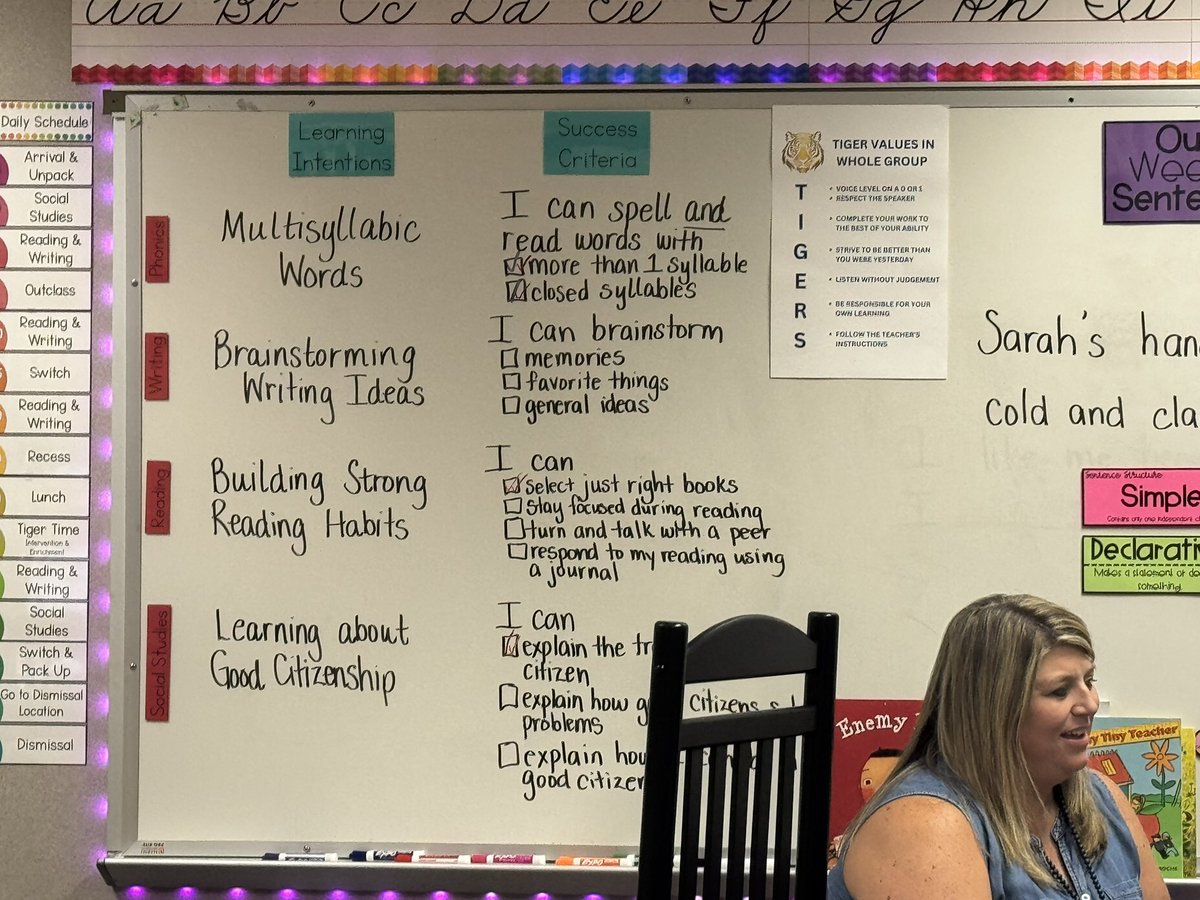 Aa Bb Cc Dd Ee Ff Gg Hh Ii
Daily Schedule
Arrival &
Unpack
Social
Studies
Reading &
Writing
Outclass
Reading &
Writing
Switch
Reading &
Writing
Recess
Lunch
Tiger Time
Intervention &
Enrichment
Reading &
Writing
Social
Studies
Switch &
Pack Up
Go to Dismissal
Location
Dismissal
Learning
Intentions
Success
Criteria
Phonics
Multisyllabic
Words
I can spell and
read words with
more than 1 syllable
closed syllables
Writing
Brainstorming
Writing Ideas
I can brainstorm
memories
favorite things
general ideas
Reading
Building Strong
Reading Habits
I can
select just right books
stay focused during reading
turn and talk with a peer
respond to my reading using
a journal
Social Studies
Learning about
Good Citizenship
I can
explain the
citizen
explain how citizens
problems
explain
good
TIGER VALUES IN
WHOLE GROUP
T
I
G
E
R
S
VOICE LEVEL ON A 0 OR 1
RESPECT THE SPEAKER
COMPLETE YOUR WORK TO
THE BEST OF YOUR ABILITY
STRIVE TO BE BETTER THAN
YOU WERE YESTERDAY
LISTEN WITHOUT JUDGEMENT
BE RESPONSIBLE FOR YOUR
OWN LEARNING
FOLLOW THE TEACHER'S
INSTRUCTIONS
Sarah's
cold and
Sentence Structure
Simple
Makes a statement or
Enemy
Tiny Teacher